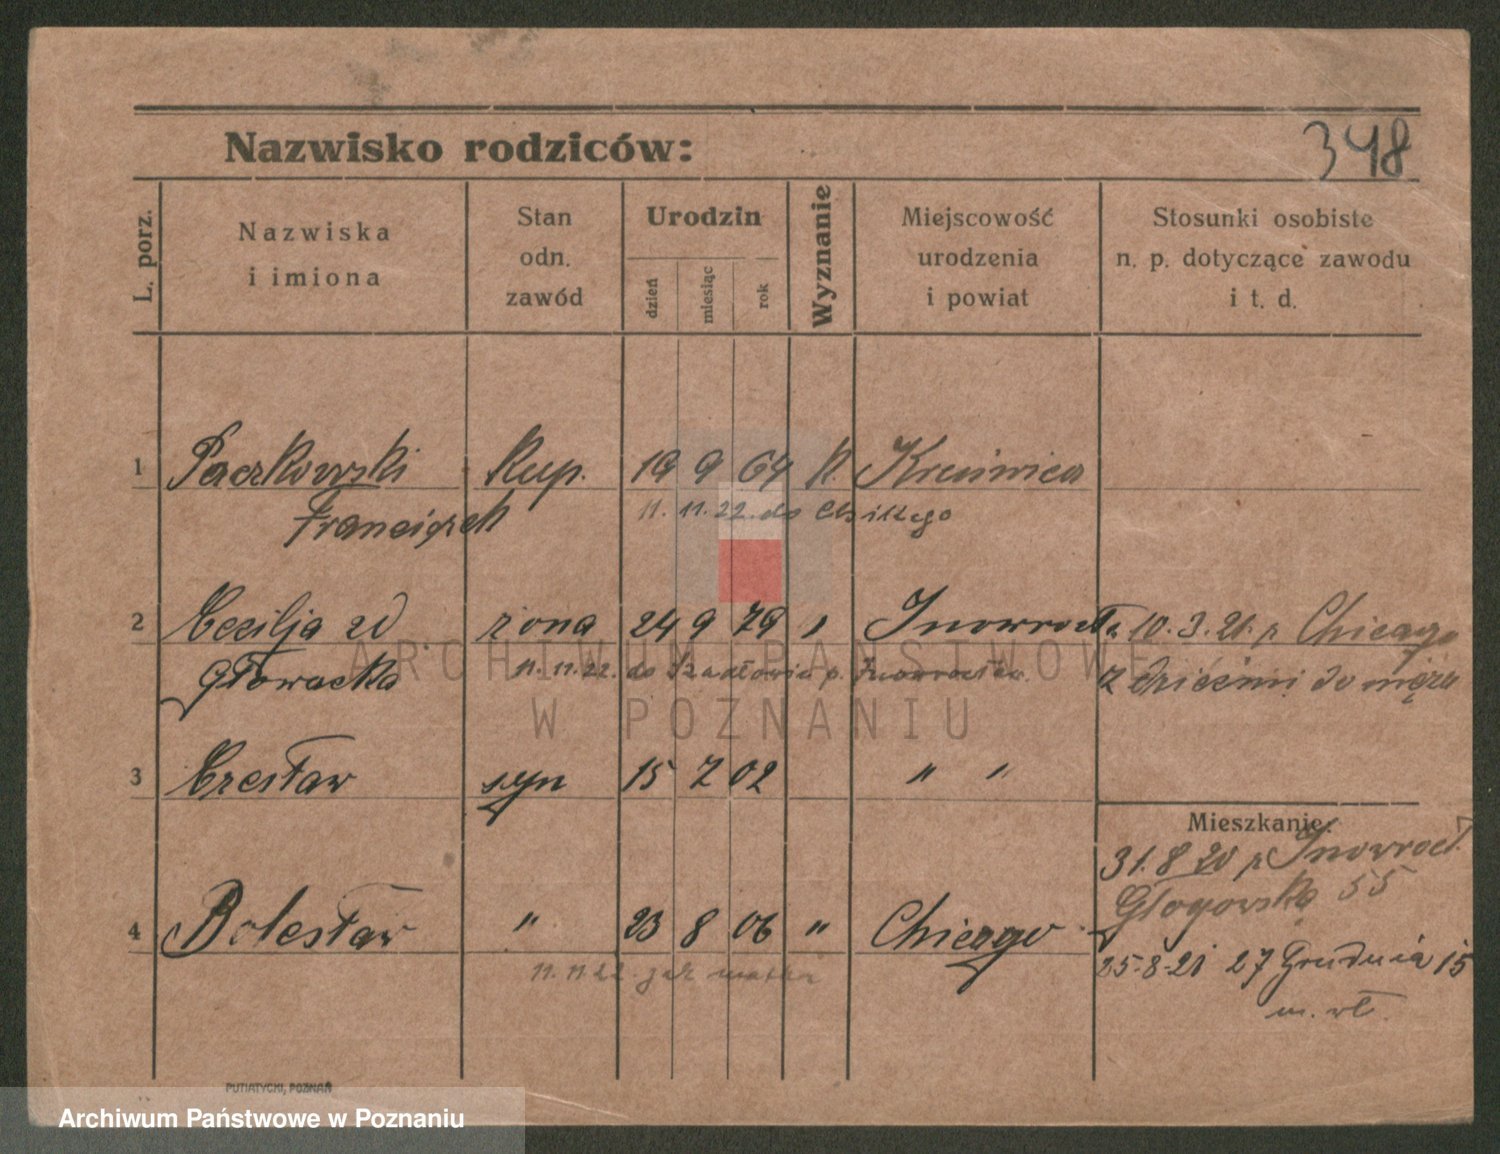 348
Nazwisko rodziców:
L. porz.
Nazwiska
i imiona
Stan
odn.
zawód
Urodzin
dzień
miesiąc
rok
Wyznanie
Miejscowość
urodzenia
i powiat
Stosunki osobiste
n. p. dotyczące zawodu
i t. d.
1 Paczkowski Kup. 19 9 64 k. Kruświca
Franciszek 11. 11. 22. do Chikago
2 Cecilja zd żona 24 9 79 " Inowrocł. 10. 3. 21. p Chicago
Głowacka 11. 11. 22. do Szadłowic p. Inowrocław. z dziećmi do męża
3 Czesław syn 15 7 02 " "
Mieszkanie:
31. 8 20 p Inowrocł.
Głogowska 55
4 Bolesław " 23 8 06 " Chicago
25.8.21 27 Grudnia 15
11. 11 22. jak matka
m. wł.
PUTIATYCKI, POZNAŃ
ARCHIWUM PAŃSTWOWE
W POZNANIU
Archiwum Państwowe w Poznaniu